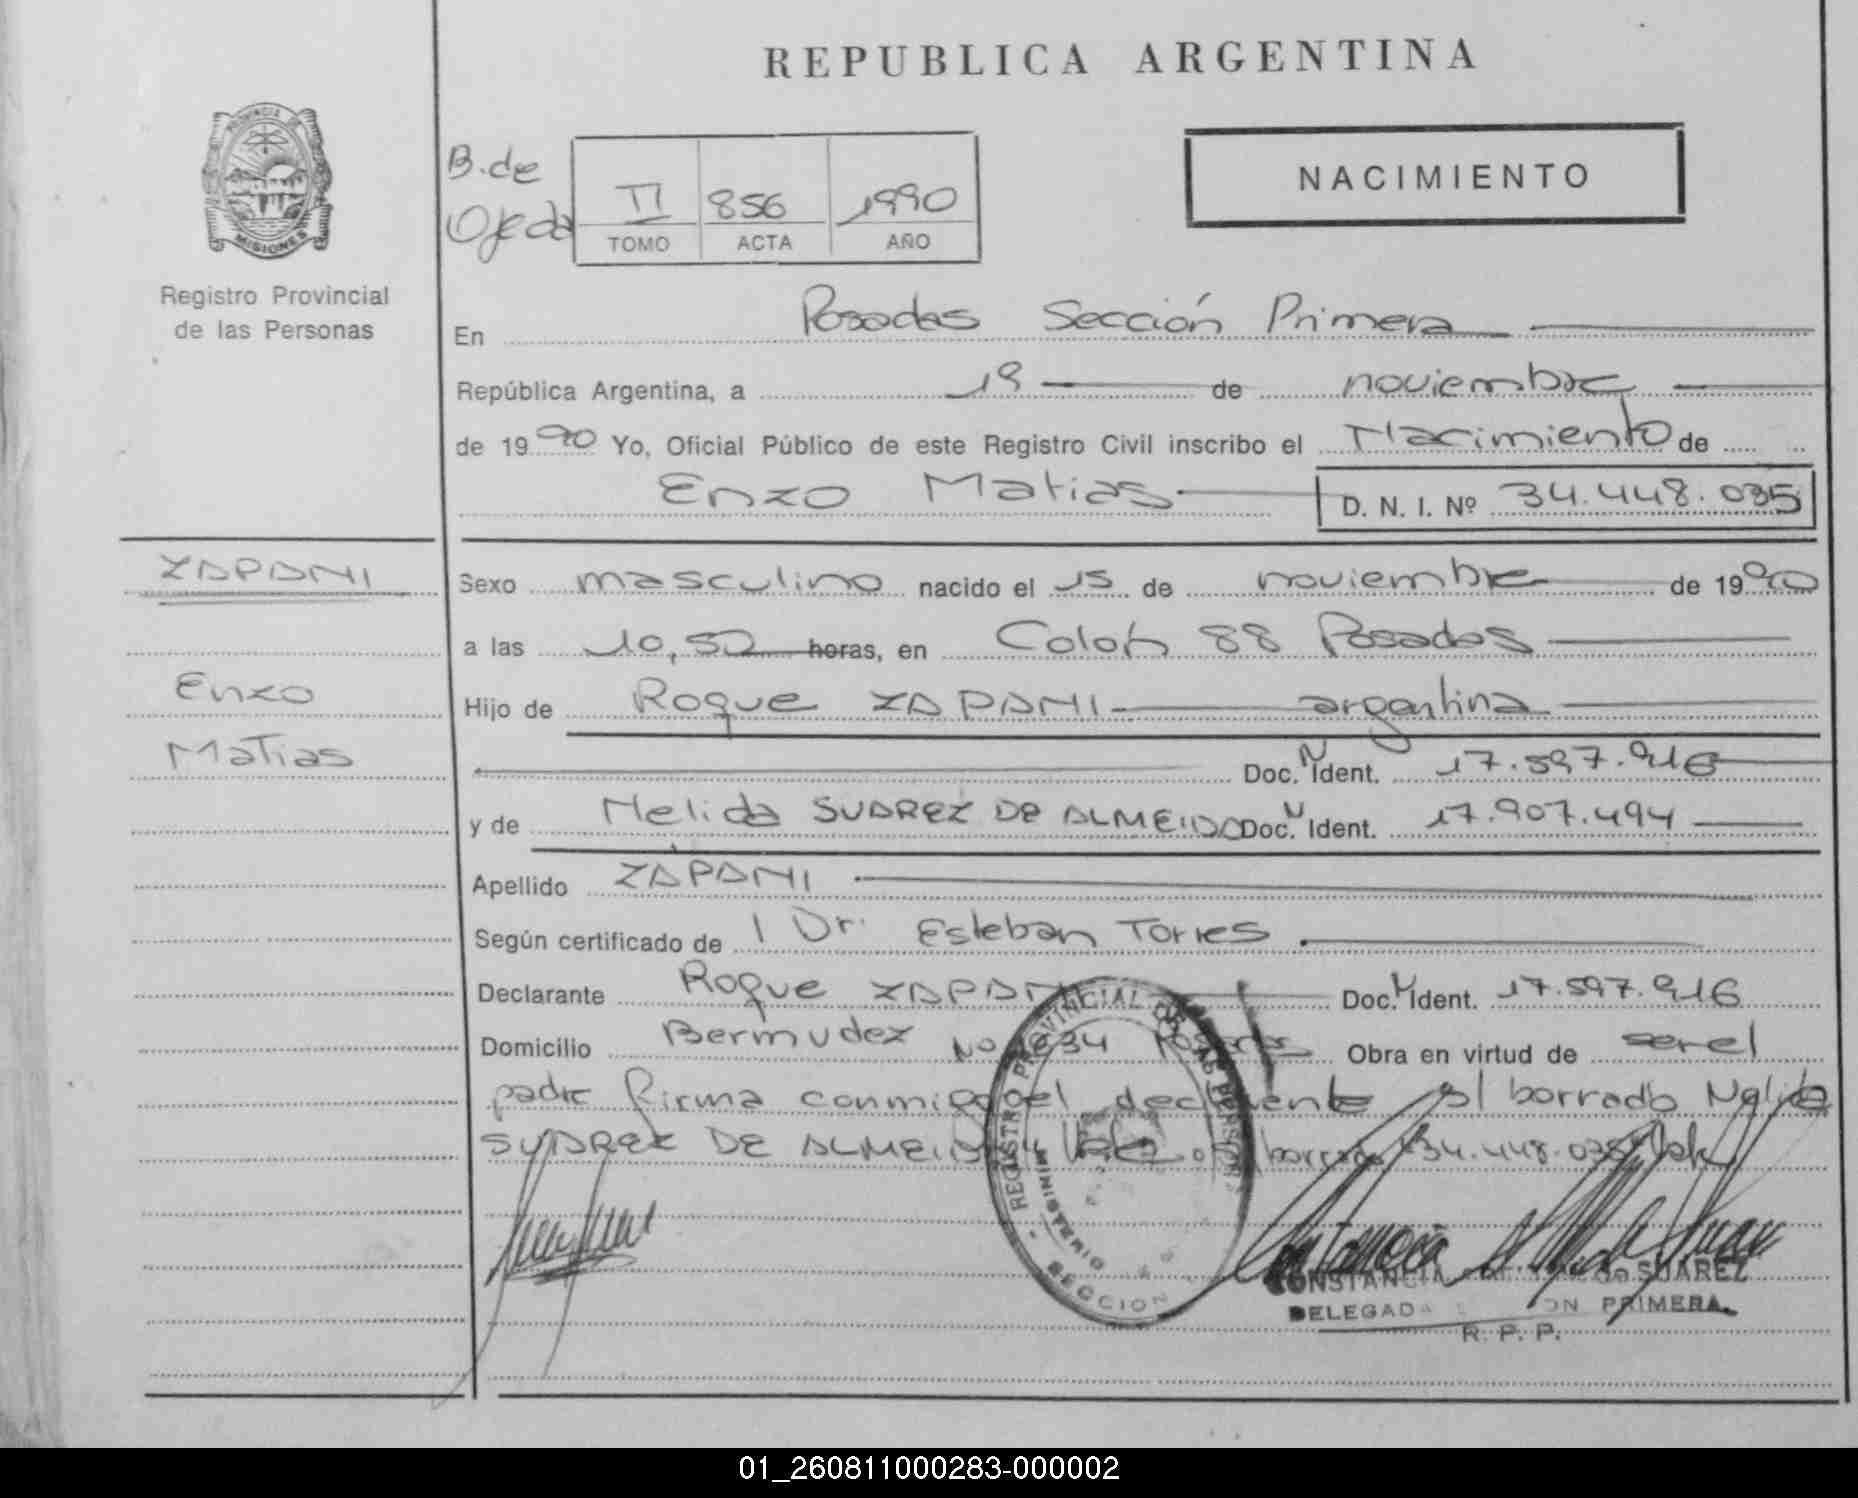 REPUBLICA ARGENTINA
PROVINCIA DE
MISIONES
Registro Provincial
de las Personas
B. de
Ojeda
II 856 1990
TOMO ACTA AÑO
NACIMIENTO
En Posadas Sección Primera
República Argentina, a 19 de noviembre
de 1990 Yo, Oficial Público de este Registro Civil inscribo el Nacimiento de
Enzo Matias
D. N. I. Nº 34.448.035
ZAPANI
Enzo
Matias
Sexo masculino nacido el 15 de noviembre de 1990
a las 10,50 horas, en Colón 88 Posadas
Hijo de Roque ZAPANI argentina
Doc. N Ident. 17.597.916
y de Nelida SUAREZ DE ALMEIDA Doc. N Ident. 17.907.494
Apellido ZAPANI
Según certificado de Dr. Esteban Torres
Declarante Roque ZAPANI Doc. N Ident. 17.597.916
Domicilio Bermudez No Posadas Obra en virtud de ser el
padre firma conmigo el declarante s/ borrado Nelida
SUAREZ DE ALMEIDA Vale o/ borrado 34.448.035 Vale
REGISTRO PROVINCIAL DE LAS PERSONAS
SECCION
CONSTANCIA SUAREZ
DELEGADA PRIMERA
R. P. P.
01_260811000283-000002